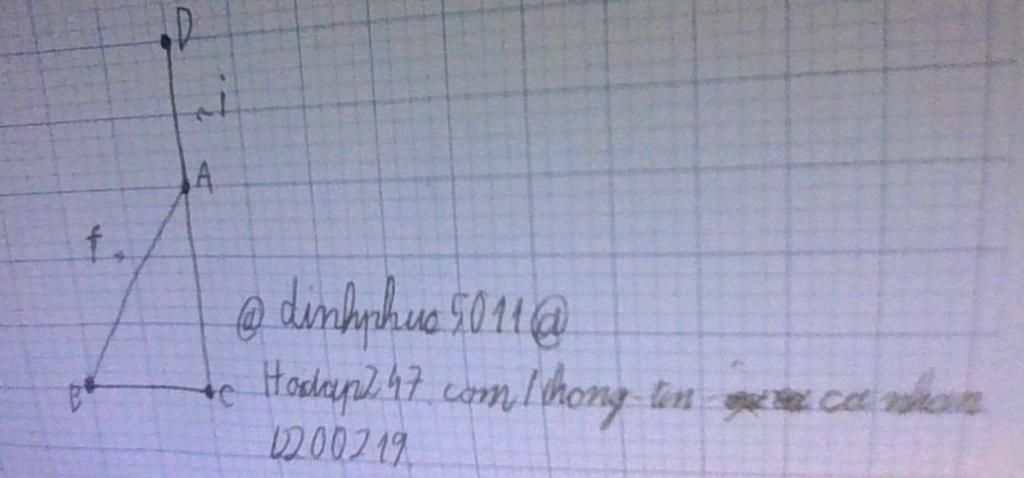 D
i
A
f
@ dinhphuc5011@
B
C
Hoidap247.com/thong-tin ca nhan
1200219